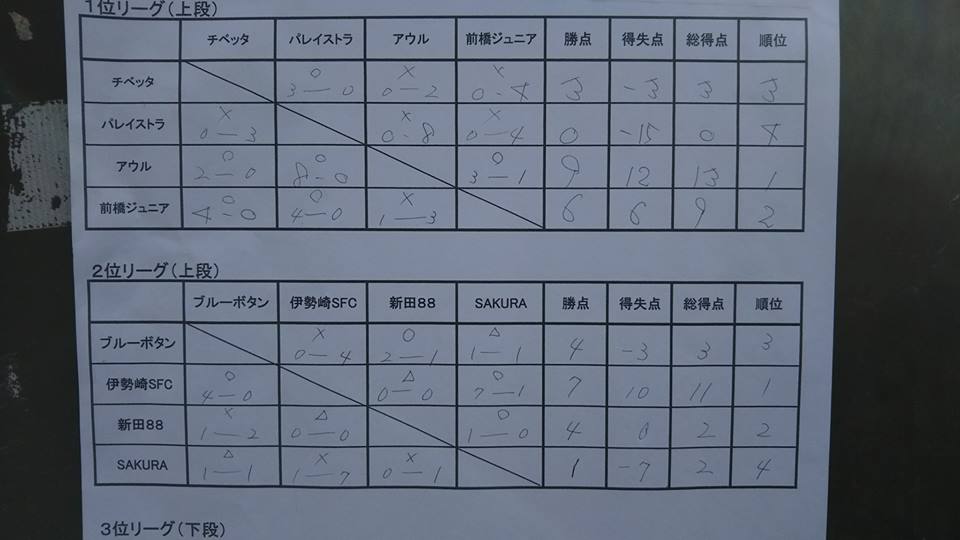 1位リーグ(上段)
チベッタ パレイストラ アウル 前橋ジュニア 勝点 得失点 総得点 順位
チベッタ ○ 3―0 × 0―2 × 0-4 3 -3 3 3
パレイストラ × 0―3 × 0-8 × 0―4 0 -15 0 4
アウル ○ 2―0 ○ 8-0 ○ 3―1 9 12 13 1
前橋ジュニア ○ 4-0 ○ 4―0 × 1―3 6 6 9 2
2位リーグ(上段)
ブルーボタン 伊勢崎SFC 新田88 SAKURA 勝点 得失点 総得点 順位
ブルーボタン × 0―4 ○ 2―1 △ 1―1 4 -3 3 3
伊勢崎SFC ○ 4―0 △ 0―0 ○ 7―1 7 10 11 1
新田88 × 1―2 △ 0―0 ○ 1―0 4 0 2 2
SAKURA △ 1―1 × 1―7 × 0―1 1 -7 2 4
3位リーグ(下段)